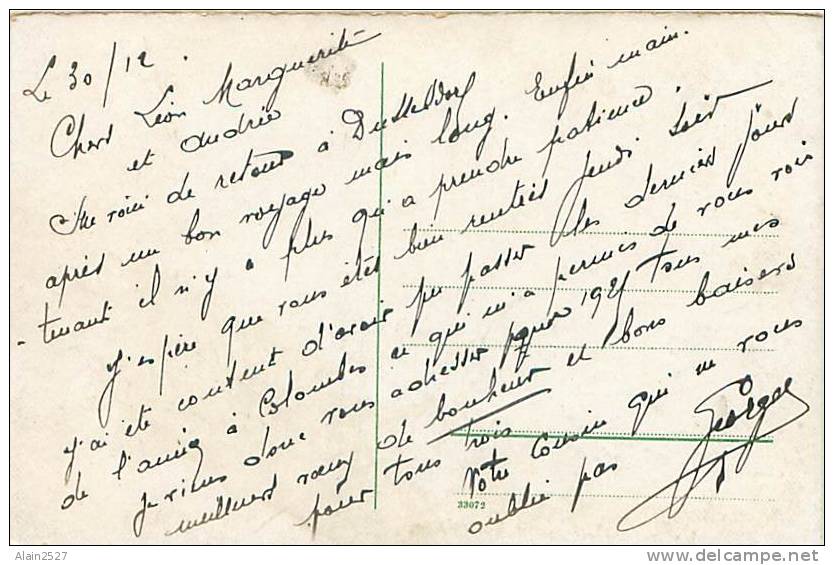 Le 30/12.
Chers Léon Marguerite
et Andrée
Me voici de retour à Dusseldorf
après un bon voyage mais long. Enfin main.
-tenant il n'y a plus qu'à prendre patience.
J'espère que vous êtes bien rentrés jeudi soir
J'ai été content d'avoir pu passer les derniers jours
de l'année à Colombes ce qui m'a permis de vous voir
Je viens donc vous adresser pour 1921 tous mes
meilleurs vœux de bonheur et bons baisers
pour tous trois
Votre Cousin qui ne vous
oublie pas
Georges
33072
Alain2527
www.delcampe.net